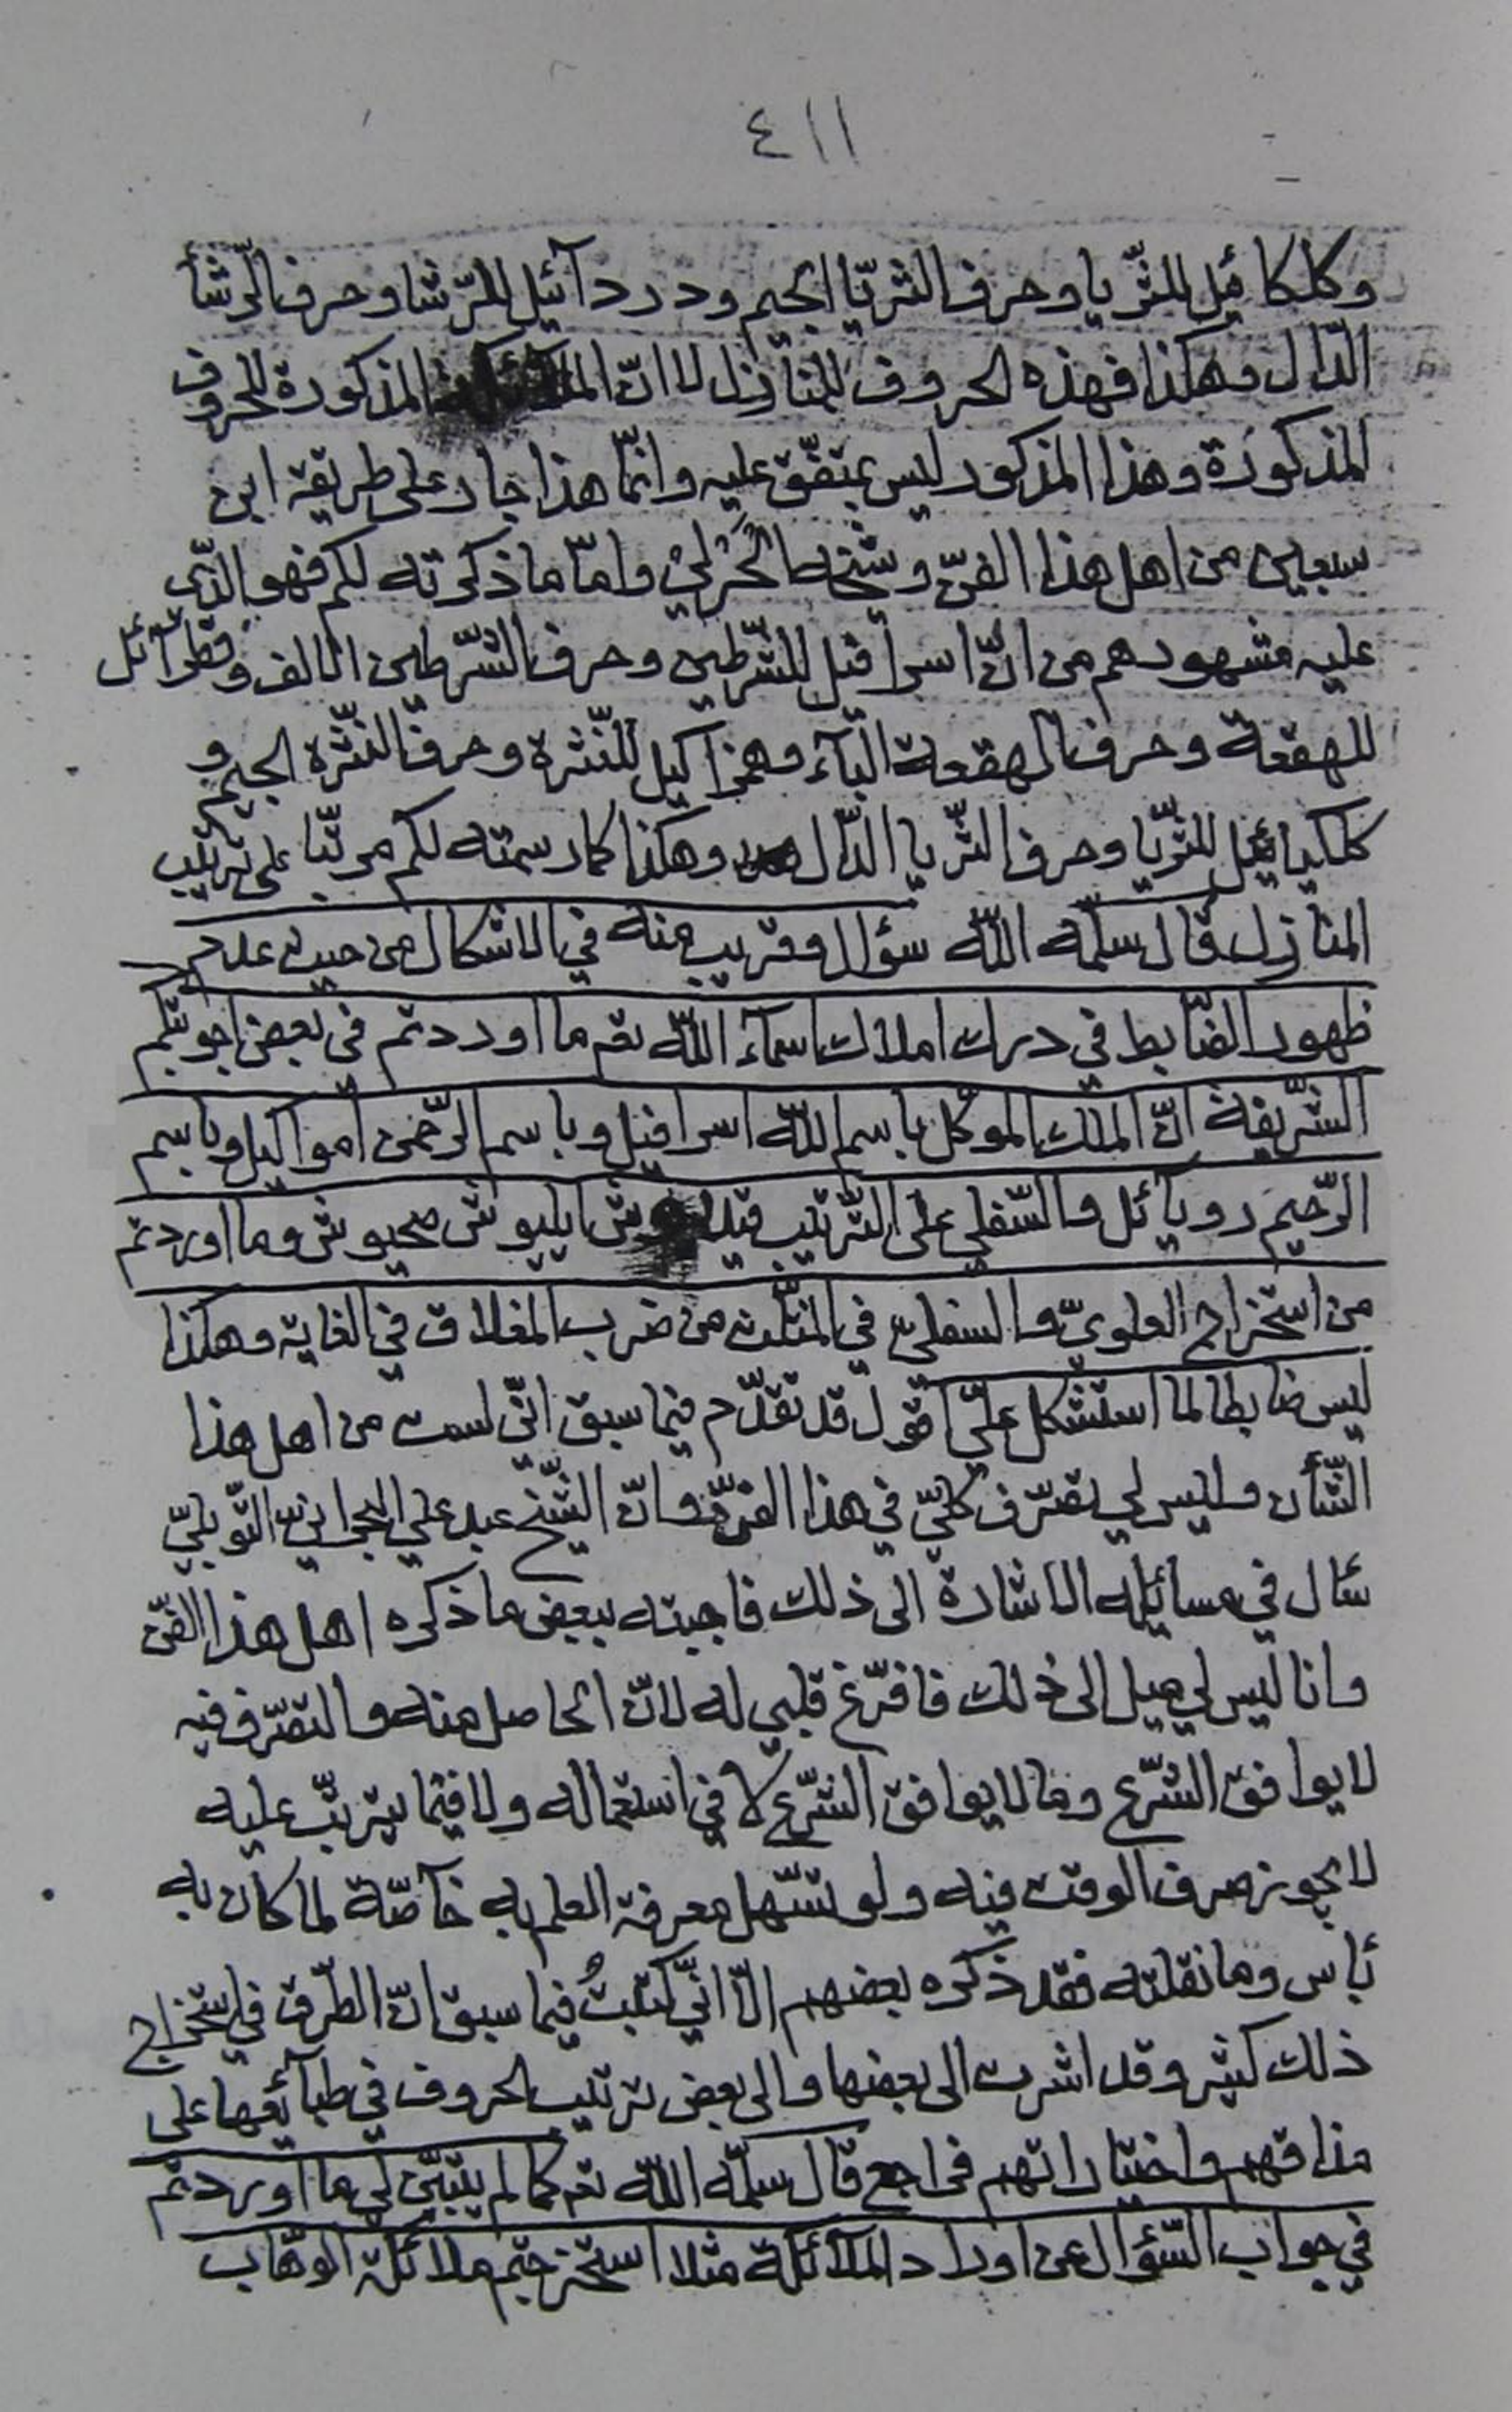 ٤١١
وكلكائيل للثّريا وحرف الثريّا الجيم ودردآئيل للرّشا وحرف الرّشأ
الدّال وهكذا فهذه الحروف للمنأزل لا انّ المذكورة للحروف
المذكورة وهذا المذكور ليس بمتفّق عليه وانّما هذا جار على طريقة ابن
سبعين من اهل هذا الفنّ وشيخه الحُرَلي وامّا ما ذكرته لكم فهو الذّى
عليه مشهورهم من انّ اسرأفيل للشّرطين وحرف الشّرطين الالف وقطرآئل
للهقعة وحرف الهقعة البآء وهمزاكيل للنّثرة وحرف النّثرة الجيم و
كلكيائيل للثّريّا وحرف الثّريا الدّال وهكذا كما رسمته لكم مرتّبا على ترتيب
المنازل قال سلّمه اللّه سؤال وقريب منه في الاشكال من حيث عدم
ظهور الضّابط في درك املاك اسمآء اللّه تعم ما اوردتم فى بعض اجوبتكم
الشّريفة انّ الملك الموكّل باسم اللّه اسرافيل وباسم الرّحمن امواكيل وباسم
الرّحيم رويآئل والسّفلي على التّرتيب ش ايليوش صحيوش وما اوردتم
من استخراج العلويّ والسفليّ في المثلّث من ضرب المغلاق في الغاية وهكذا
ليس ضابطا لما استشكل عليّ اقول قد تقدّم فيما سبق انّي لست من اهل هذا
الشّأن وليس لي تصرّف كلّيّ في هذا الفنّ وانّ الشّيخ عبد علي البحرانيّ التّوبليّ
سئال في مسائله الاشارة الى ذلك فاجبته ببعض ما ذكره اهل هذا الفّن
وانا ليس لي ميل الى ذلك فافرّغ قلبي له لانّ الحاصل منه والتصرّف فيه
لا يوافق الشّرع وما لا يوافق الشّرع لا في استعماله ولا فيما يترتّب عليه
لا يجوز صرف الوقت فيه ولو تسّهل معرفة العلم به خآصّة لما كان به
بأس وما نقلته فقد ذكره بعضهم الّا انّي كتبتُ فيما سبق انّ الطّرق في استخراج
ذلك كثير وقد اشرت الى بعضها والى بعض ترتيب الحروف في طبآئعها على
مذاقهم واختياراتهم فراجع قال سلّمه اللّه تعم كما لم يتبيّن لي ما اوردتم
في جواب السّؤال عن اوراد الملآئكة مثلا استخرجتم ملائكة الوهّاب